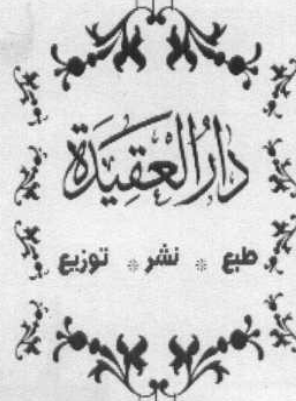 دَارُ الْعَقِيدَة
طبع * نشر * توزيع